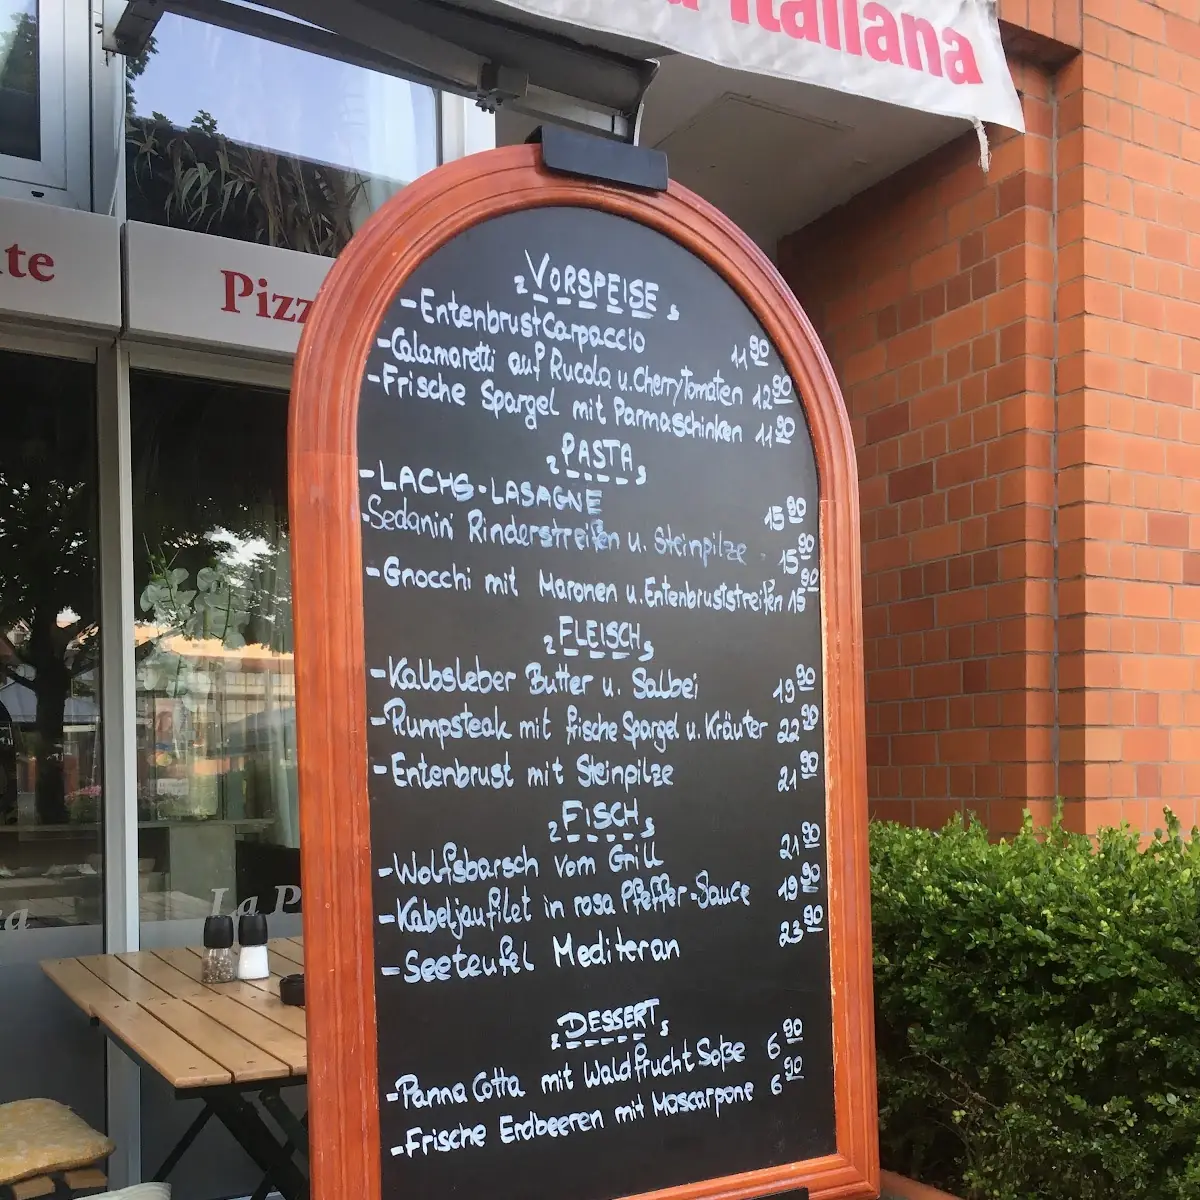 Italiana
Pizz
VORSPEISE
-Entenbrust Carpaccio 11 90
-Calamaretti auf Rucola u. Cherrytomaten 12 90
-Frische Spargel mit Parmaschinken 11 90
PASTA
-LACHS-LASAGNE 15 90
-Sedanini Rinderstreifen u. Steinpilze 15 90
-Gnocchi mit Maronen u. Entenbruststreifen 15 90
FLEISCH
-Kalbsleber Butter u. Salbei 19 90
-Rumpsteak mit frische Spargel u. Kräuter 22 90
-Entenbrust mit Steinpilze 21 90
FISCH
-Wolfsbarsch vom Grill 21 90
-Kabeljaufilet in rosa Pfeffer-Sauce 19 90
-Seeteufel Mediteran 23 90
DESSERT
-Panna Cotta mit Waldfrucht Soße 6 90
-Frische Erdbeeren mit Mascarpone 6 90
La P